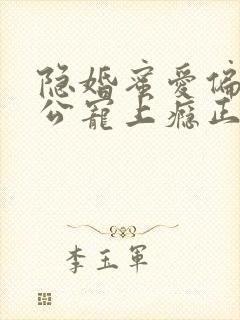 隐婚蜜爱偏
公宠上瘾正
李玉军